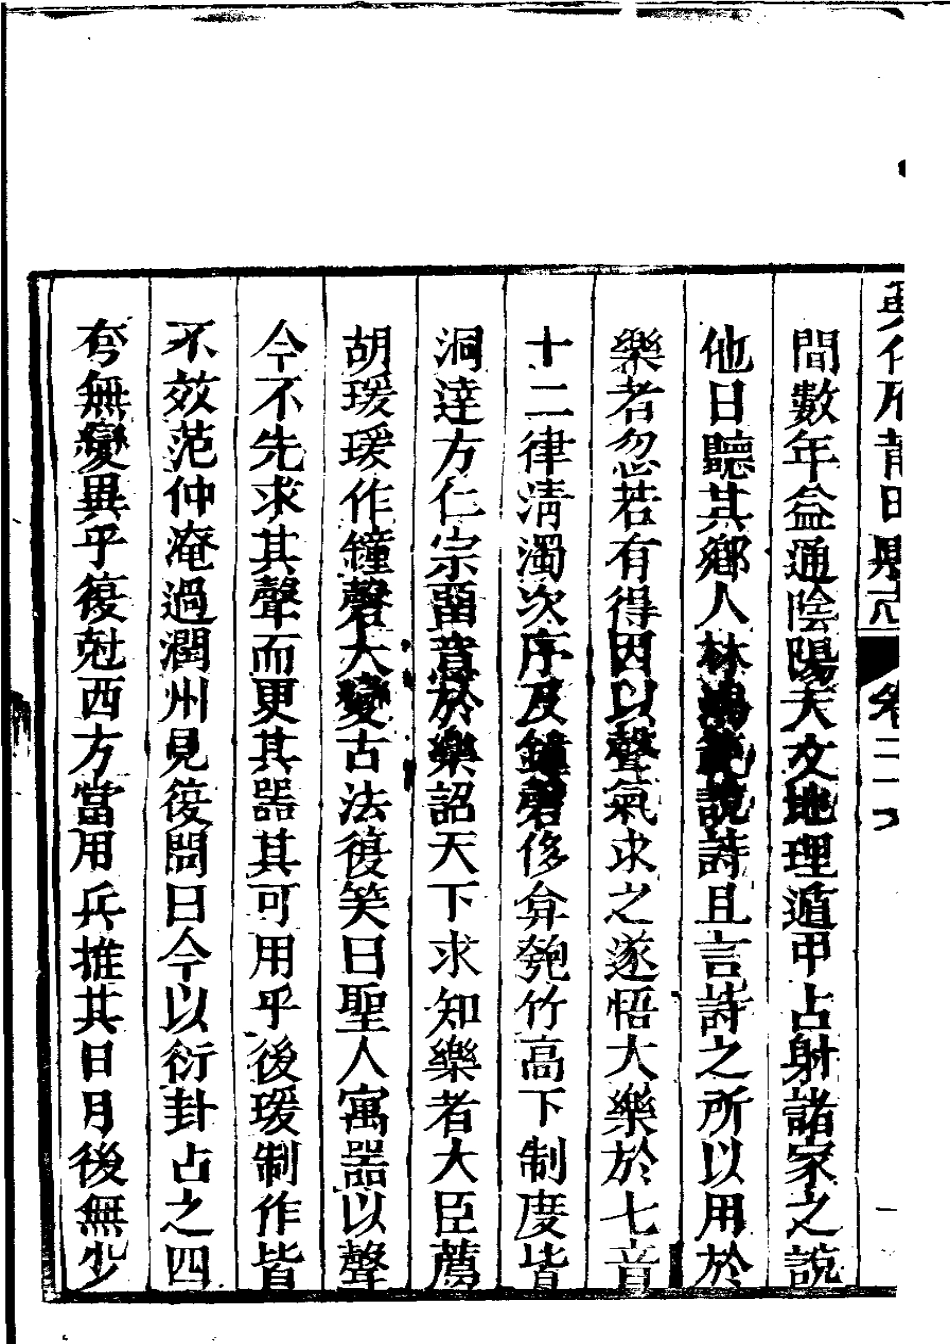 間數年益通陰陽天文地理遁甲占射諸家之說
他日聽其鄉人林鴻範說詩且言詩之所以用於
樂者忽若有得因以聲氣求之遂悟大樂於七音
十二律清濁次序及鐘磬侈弇匏竹高下制度皆
洞達方仁宗留意於樂詔天下求知樂者大臣薦
胡瑗瑗作鐘磬大變古法復笑曰聖人寓器以聲
今不先求其聲而更其器其可用乎後瑗制作皆
不效范仲淹過潤州見復問曰今以衍卦占之四
夸無變異乎復尅西方當用兵推其日月後無少